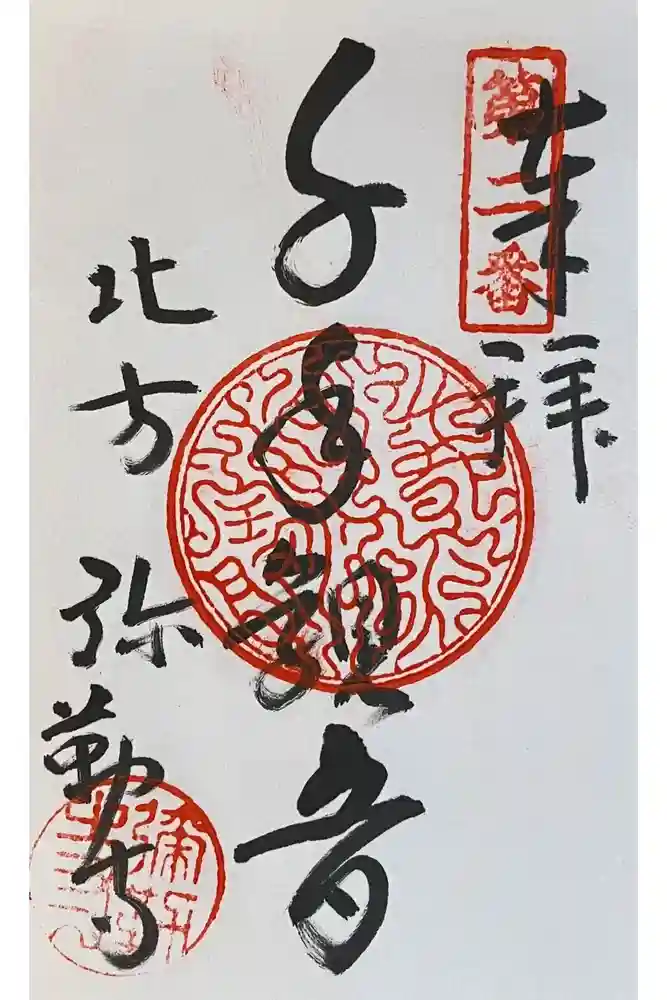 奉拝
第二番
千手観音
北方
弥勒寺